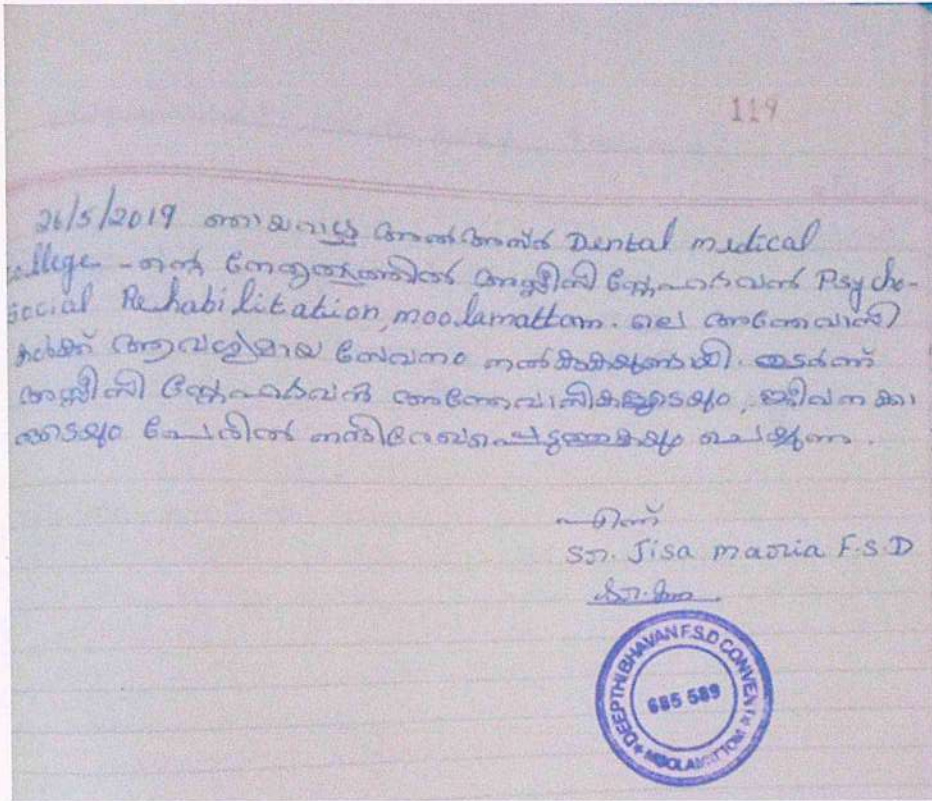 119
26/5/2019 ഞായറാഴ്ച അൽഅസർ Dental medical
college - ന്റെ നേതൃത്വത്തിൽ അസ്സീസി സ്നേഹഭവൻ Psycho-
social Rehabilitation, moolamattom. ലെ അന്തേവാസി
കൾക്ക് ആവശ്യമായ സേവനം നൽകുകയുണ്ടായി. തുടർന്ന്
അസ്സീസി സ്നേഹഭവൻ അന്തേവാസികളുടെയും, ജീവനക്കാ
രുടെയും പേരിൽ നന്ദിരേഖപ്പെടുത്തുകയും ചെയ്യുന്നു.
എന്ന്
Sr. Jisa maria F.S.D
DEEPTHI BHAVAN F.S.D CONVENT
685 589
MOOLAMATTOM